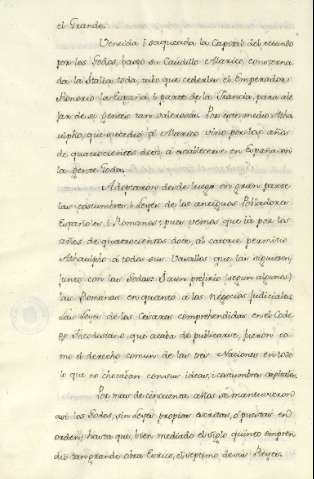 el Grande.
Vencida i saqueada la Capital del mundo
por los Godos, baxo su Caudillo Alarico, consterna
da la Italia toda, tubo que cederles el Emperador
Honorio la España, i parte de la Francia, para ale
jar de si gentes tan valerosas. Por este medio Atha
ulpho, que sucedió à Alarico vino por los años
de quatrocientos diez à establecerse en España con
la gente Goda.
Adoptaron desde luego en gran parte
las costumbres i Leyes de los antiguos Pobladores
Españoles i Romanos; pues vemos que ià por los
años de quatrocientos doce, al catorce permitio
Athaulpho à todos sus Vasallos que las siguiesen,
junto con las Godas. I aun prefirio (segun algunos)
las Romanas en quanto à los negocios judiciales
Las Leyes de los Cesares comprehendidas en el Codi
go Theodosiano, que acaba de publicarse, fueron co
mo el derecho comun de las tres Naciones en todo
lo que no chocaban con sus ideas, i costumbres
Por mas de cincuenta años se mantuvieron
asi los Godos, sin Leyes propias escritas, ò puestas en
orden; hasta que, bien mediado el siglo quinto empren
dio tan grande obra Eurico, el septimo de sus Reyes.